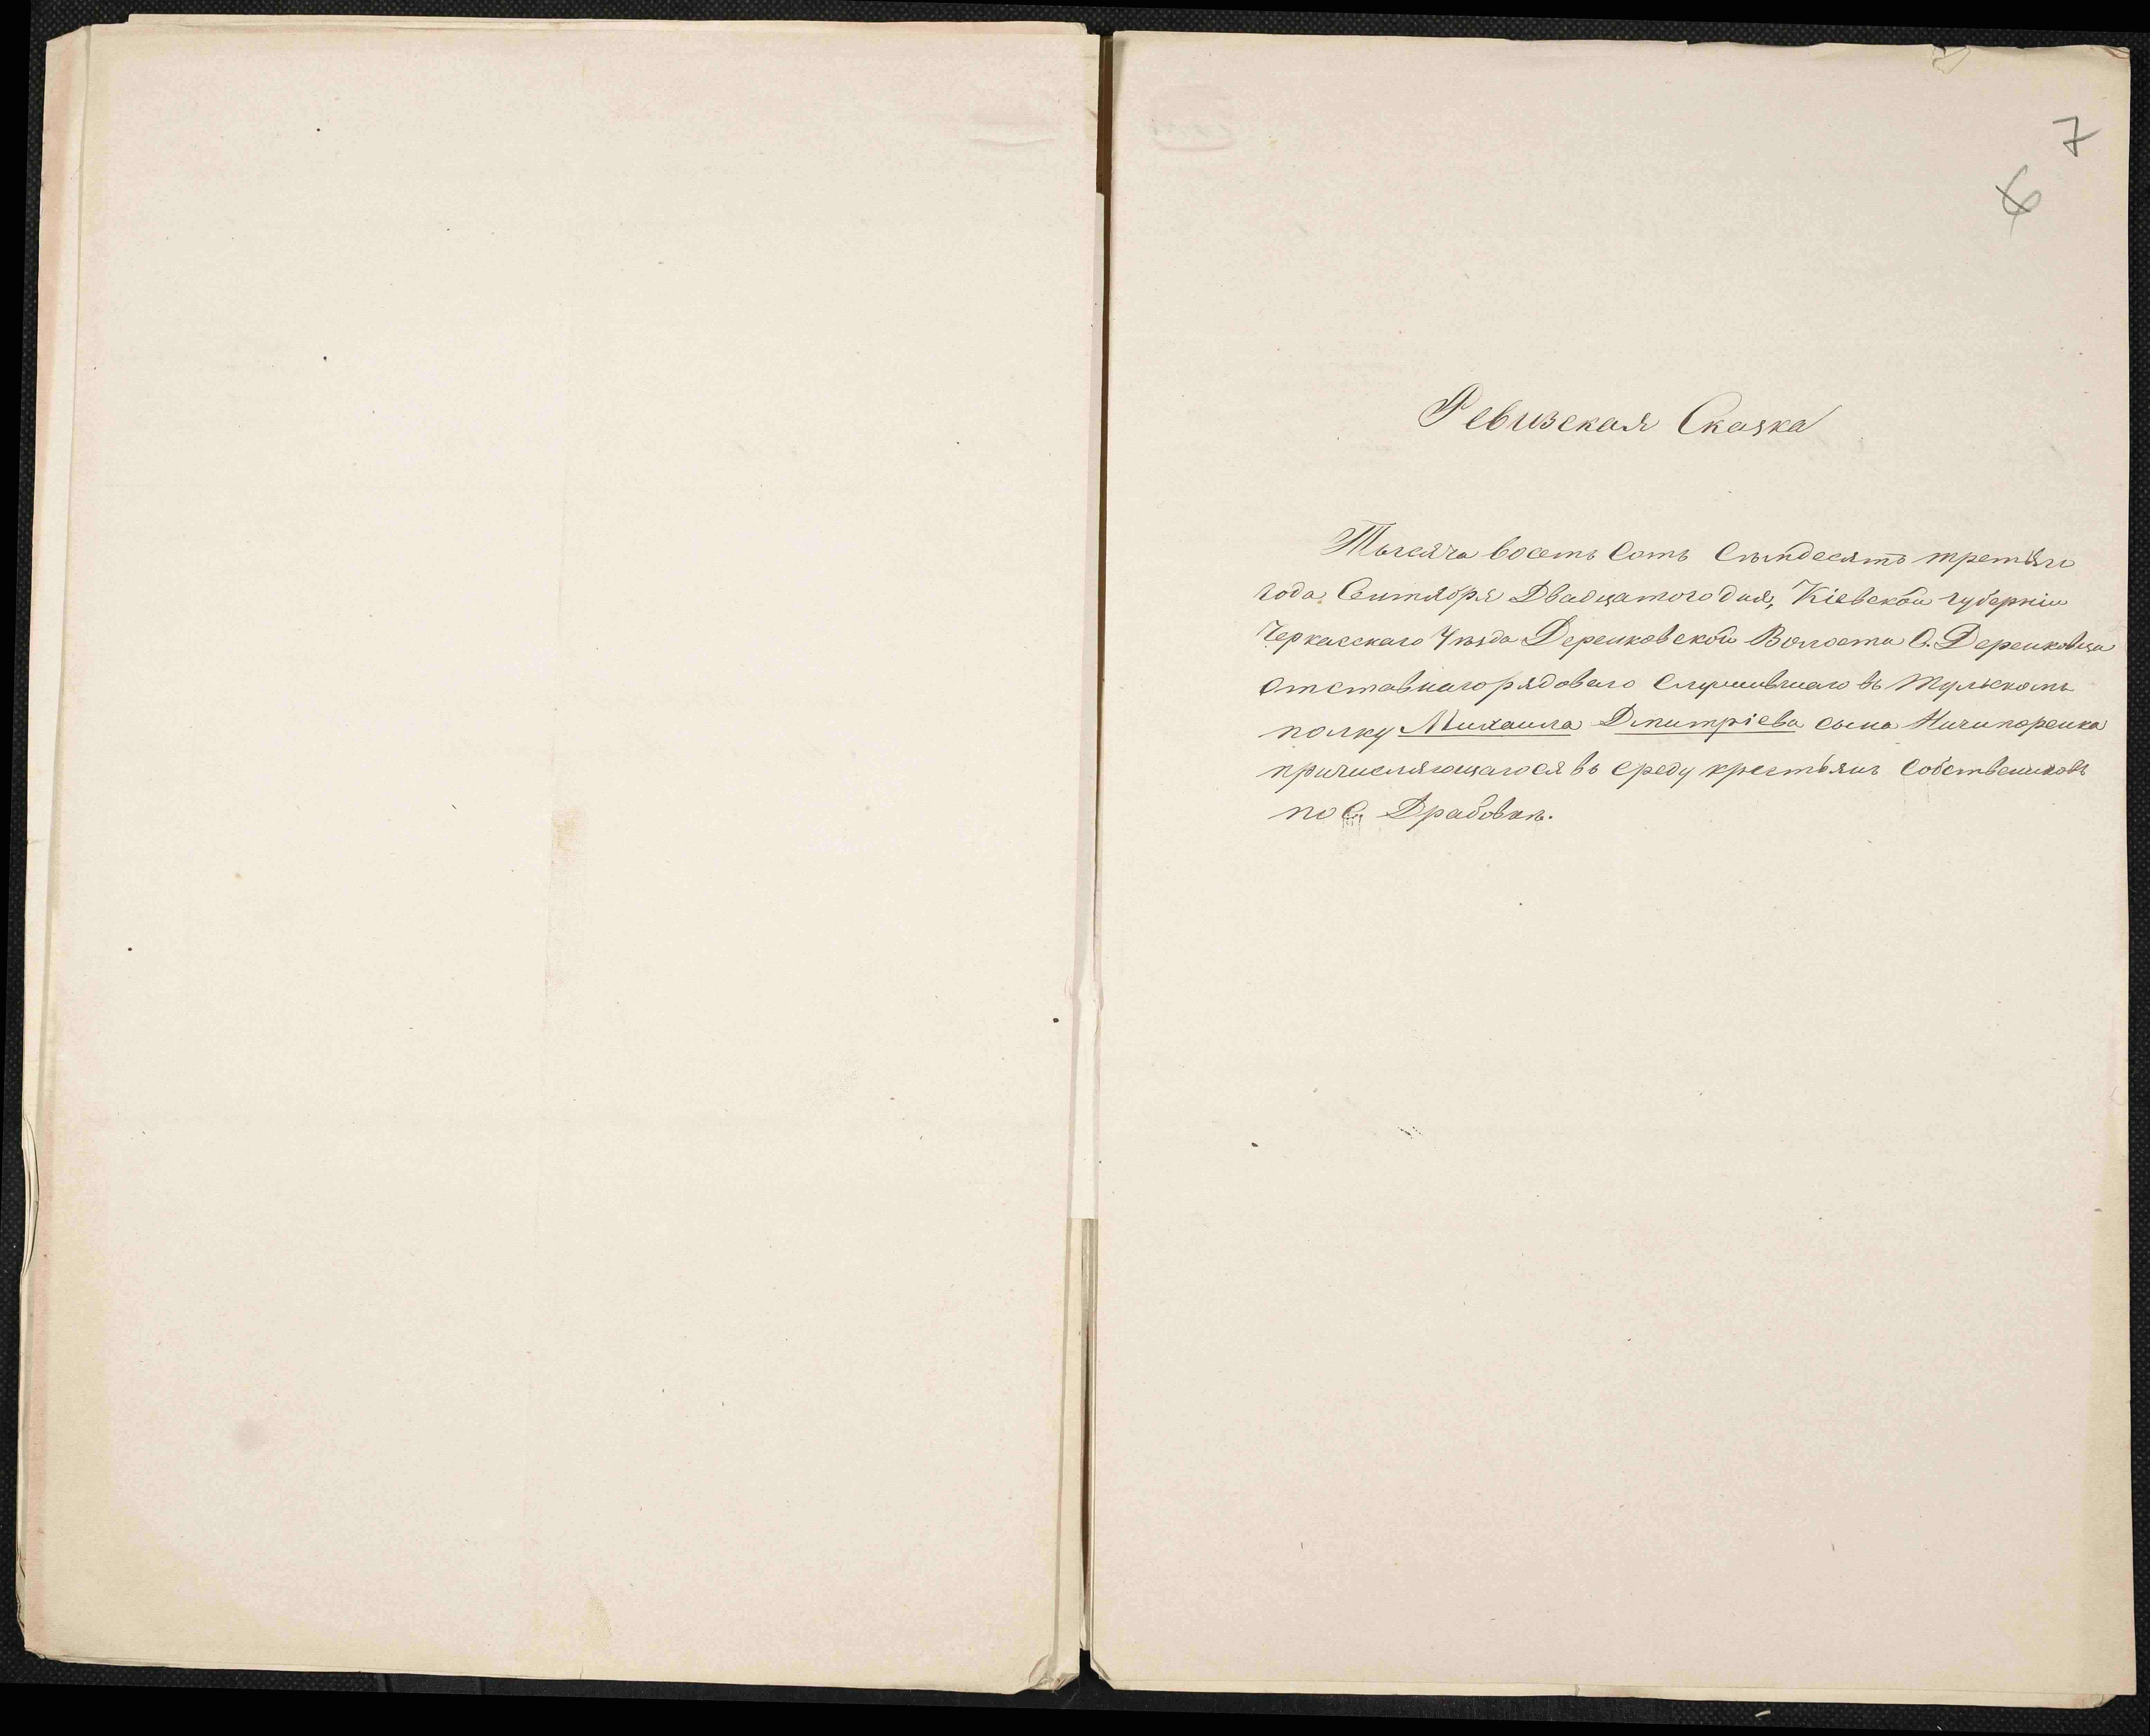 7
6
Ревизская Сказка
Тысяча восемь Сотъ Семьдесятъ третьяго
года Сентября Двадцатого дня, Кіевской губерніи
Черкасскаго Уѣзда Деренковской Волости С. Деренковца
отставнаго рядоваго служившаго въ Тульскомъ
полку Михаила Дмитріева сына Ничипоренка
причисляющагося въ среду крестьянъ Собствениковъ
по С. Драбовкѣ.